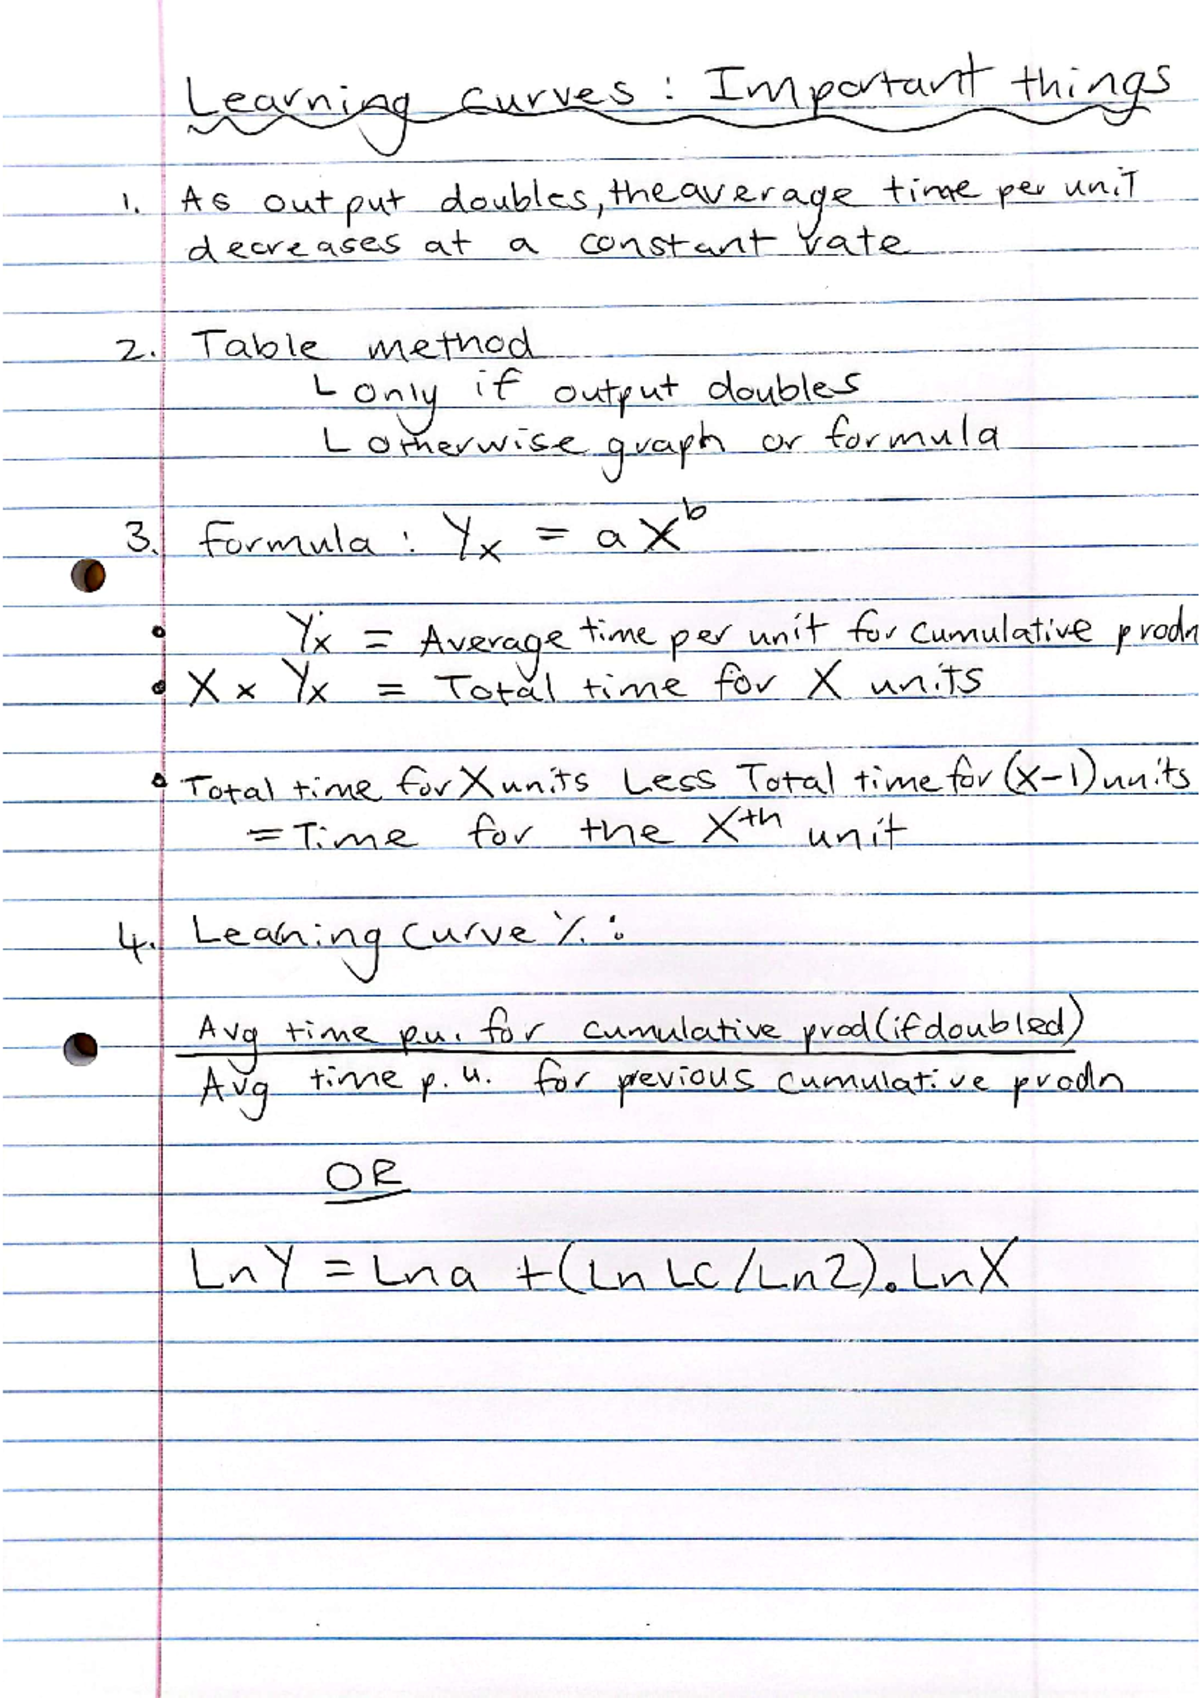 Learning curves : Important things
1. As output doubles, the average time per unit
decreases at a constant rate
2. Table method
L only if output doubles
L otherwise graph or formula
3. formula : Yx = aX^b
• Yx = Average time per unit for cumulative prodn
• X × Yx = Total time for X units
• Total time for X units Less Total time for (X-1) units
= Time for the Xth unit
4. Leaning curve % :
Avg time p.u. for cumulative prod (if doubled)
Avg time p.u. for previous cumulative prodn
OR
Ln Y = Ln a + (Ln LC / Ln 2). Ln X